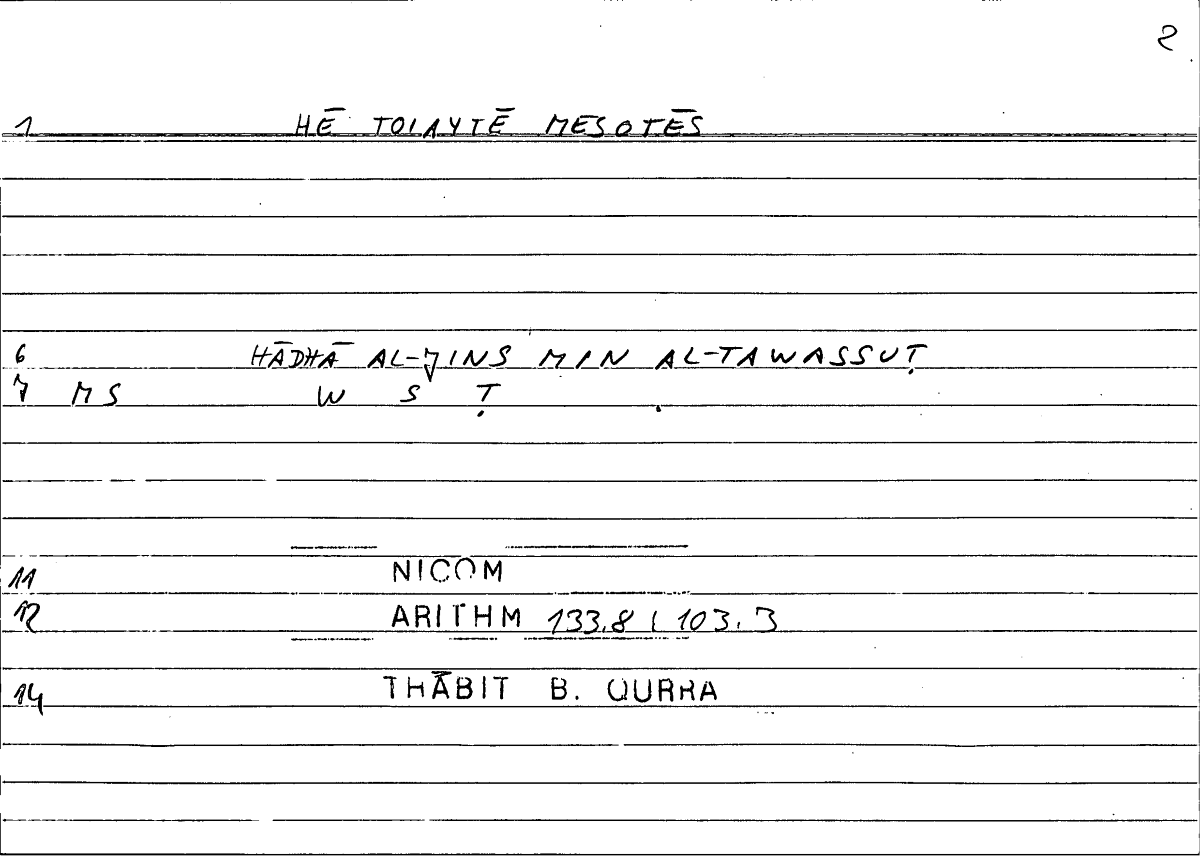 2
1 HĒ TOIAYTĒ MESOTĒS
6 HĀDHĀ AL-JINS MIN AL-TAWASSUṬ
7 MS W S Ṭ .
11 NICOM
12 ARITHM 133.8 ( 103.3
14 THĀBIT B. QURRA